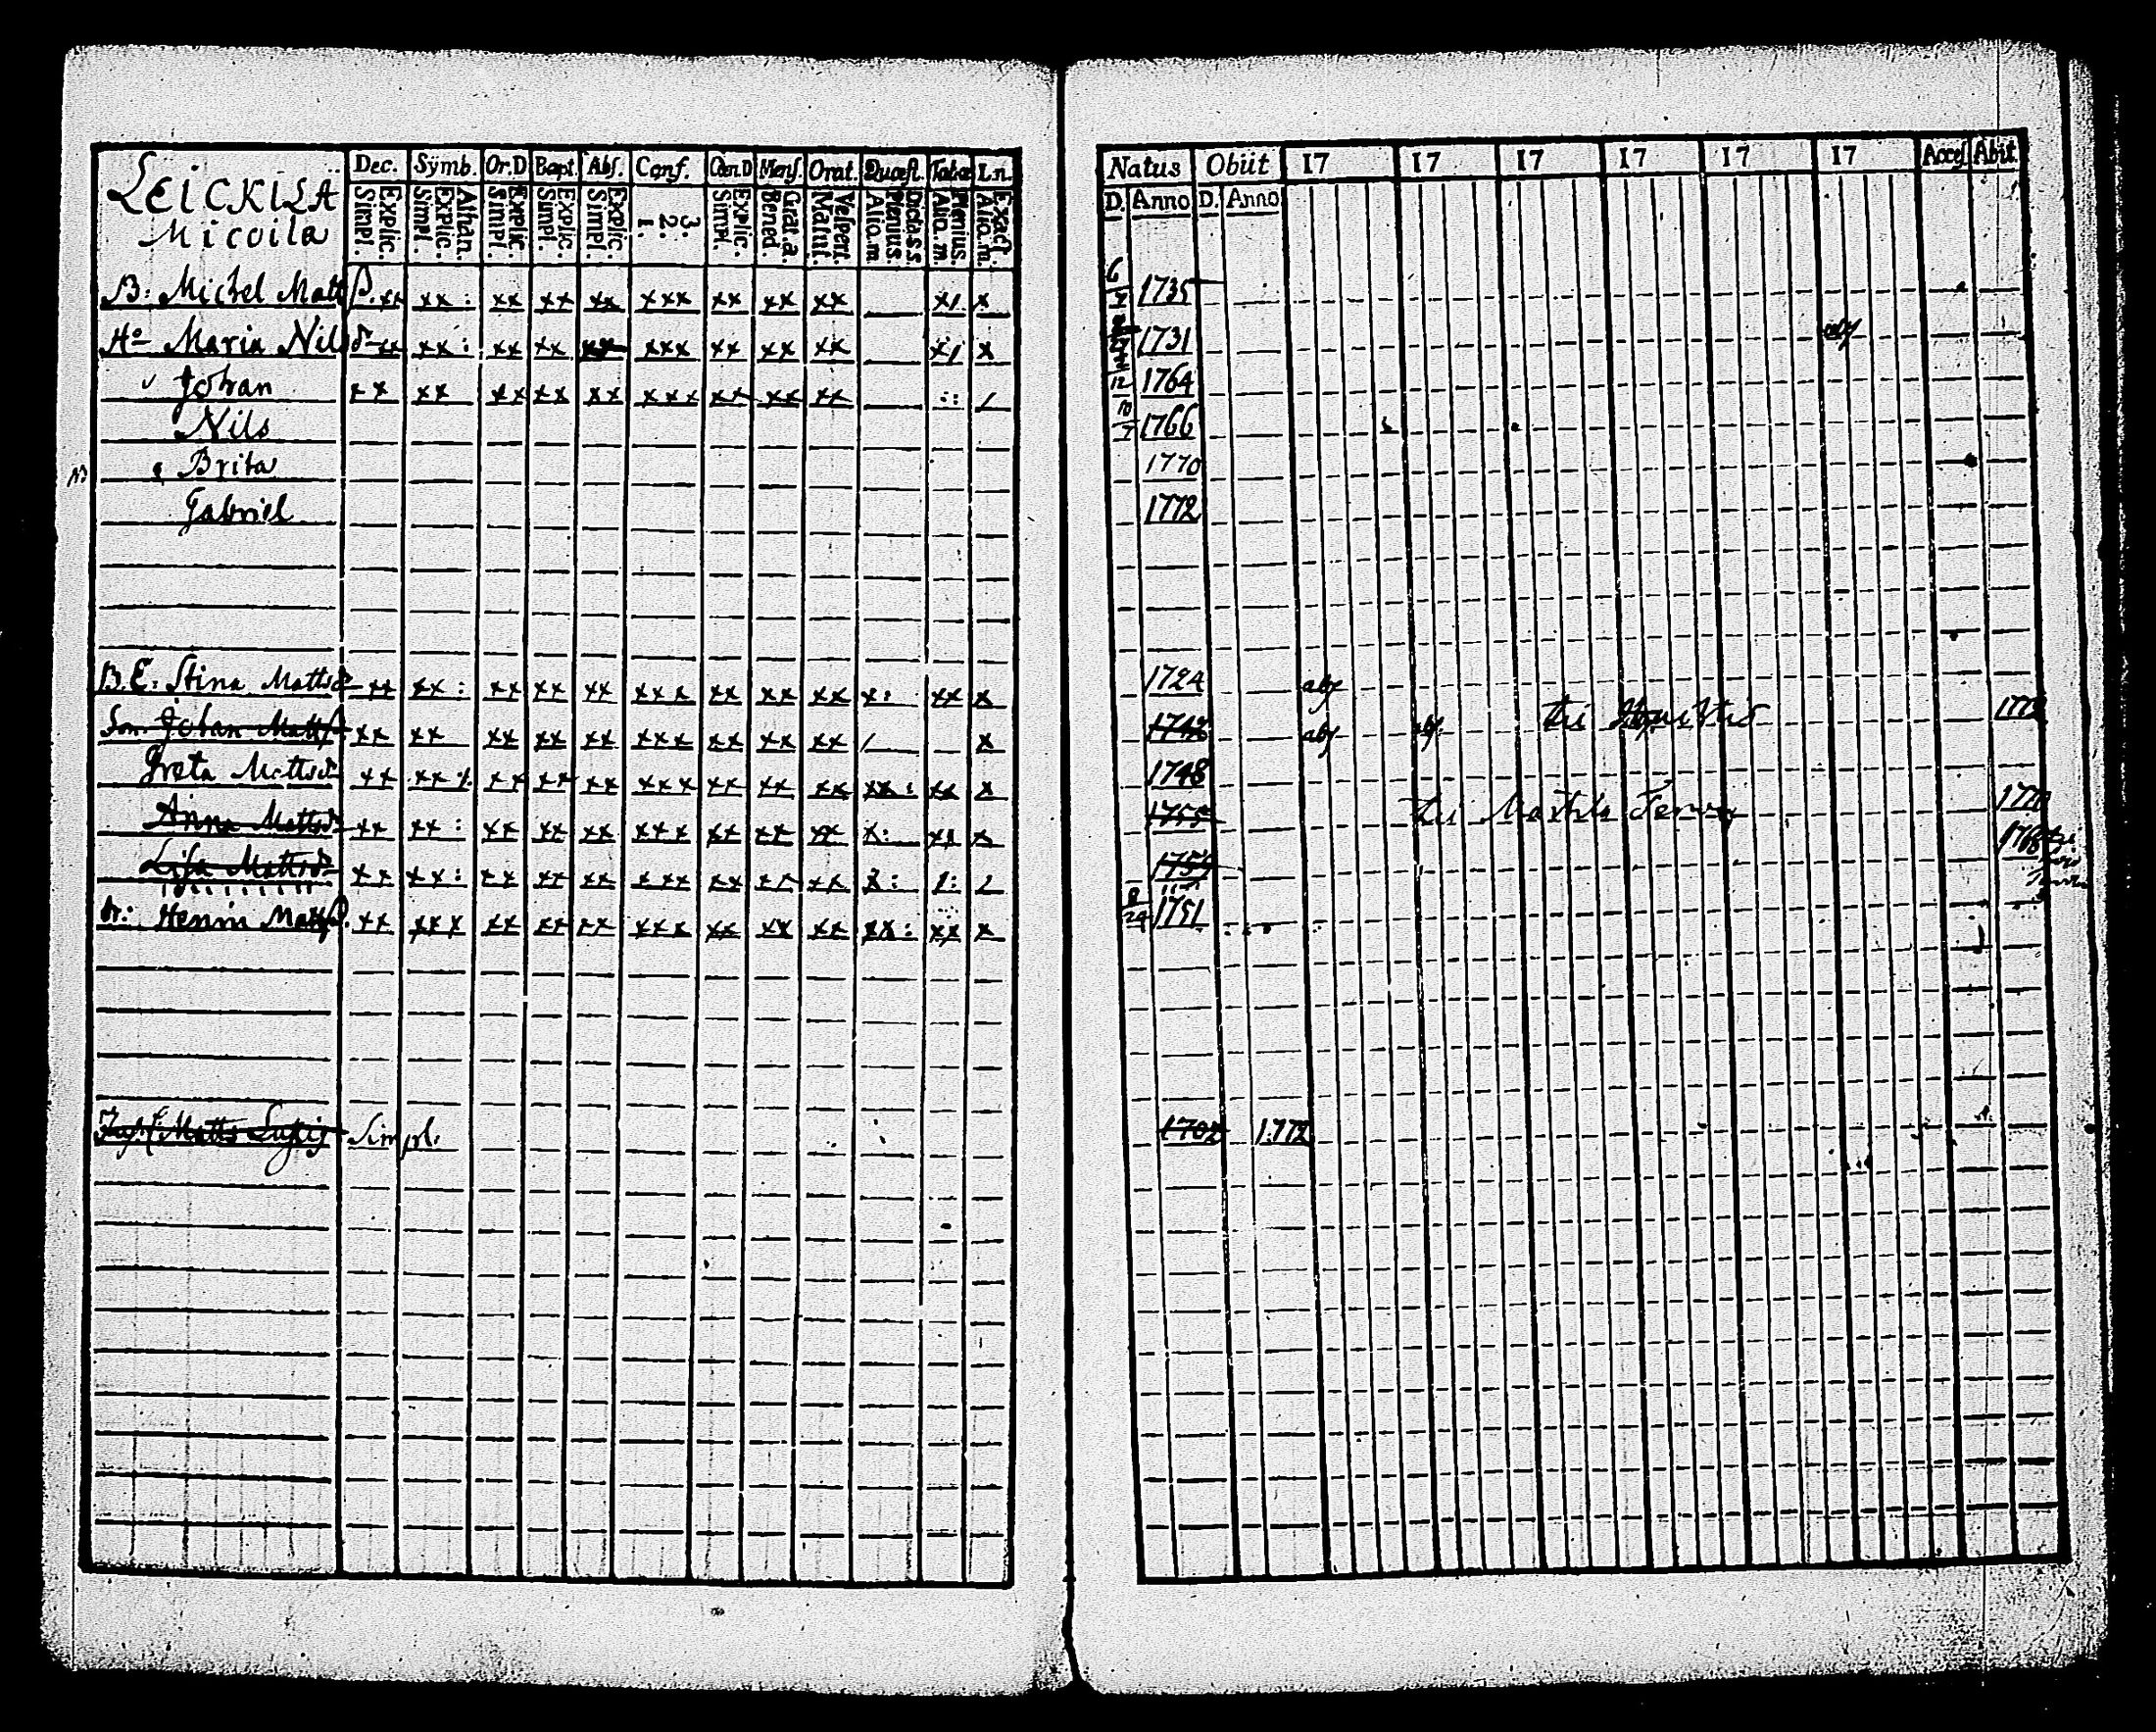 LEICKILÄ
Micoila
Dec. Symb. Or.D Bapt. Abs. Conf. Cœn.D Mens. Orat. Quæst. Tabæ L.n.
Explic. Simpl. Athan. Explic. Simpl. Explic. Simpl. Explic. Simpl. Explic. Simpl. 3. 2. 1. Explic. Simpl. Grat.a. Bened. Vespert. Matut. Dicta.s.s. Plenius. Aliq.m Plenius. Aliq.m Exact. Aliq.m.
Natus Obiit 17 17 17 17 17 17 Acces. Abit.
D. Anno D. Anno
B: Michel Matts. xx xx: xx xx xx xxx xx xx xx x/ x 6 1735
Ho Maria Nilsdr xx xx: xx xx xx xxx xx xx xx x/ x 1731 abs
Johan xx xx xx xx xx xxx xx xx xx / 12 1764
Nils 10/7 1766
Brita 1770
Gabriel 1772
B.E: Stina Mattsdr xx xx: xx xx xx xxx xx xx xx x: xx x 1724 abs
Son Johan Matts xx xx xx xx xx xxx xx xx xx / x abs abs
Greta Mattsdr xx xx xx xx xx xxx xx xx xx xx: xx x 1748
Anna Mattsdr xx xx: xx xx xx xxx xx xx xx x: x 1755
Lisa Mattsdr xx xx: xx xx xx xxx xx xx xx x: 1: / 1768
Henric Matts. xx xxx xx xx xx xxx xx xx xx xx: xx x 8/24 1751
Matts Simpl. 1702 1772